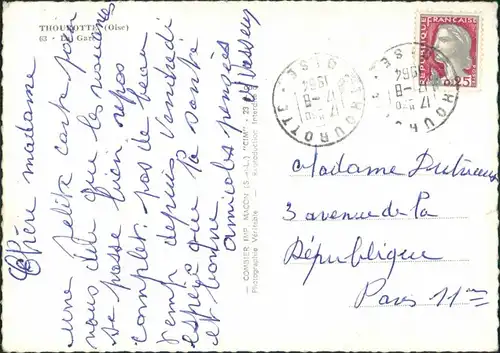 THOUROTTE (Oise)
63 -
Chère madame
une petite carte pour
vous dire que les vacances
se passe bien repos
complet. pas de beau
temp depuis Vendredi
espère que la santé
et bonne
amicales pensées
— COMBIER IMP. MACON (S.-et-L.) "CIM" - 23
Photographie Véritable — Reproduction Interdite
THOUROTTE
17 -8
1964
OISE
THOUROTTE
17 -8
1964
OISE
REPUBLIQUE FRANÇAISE
0,25
Madame
3 avenue de la
République
Paris 11ème